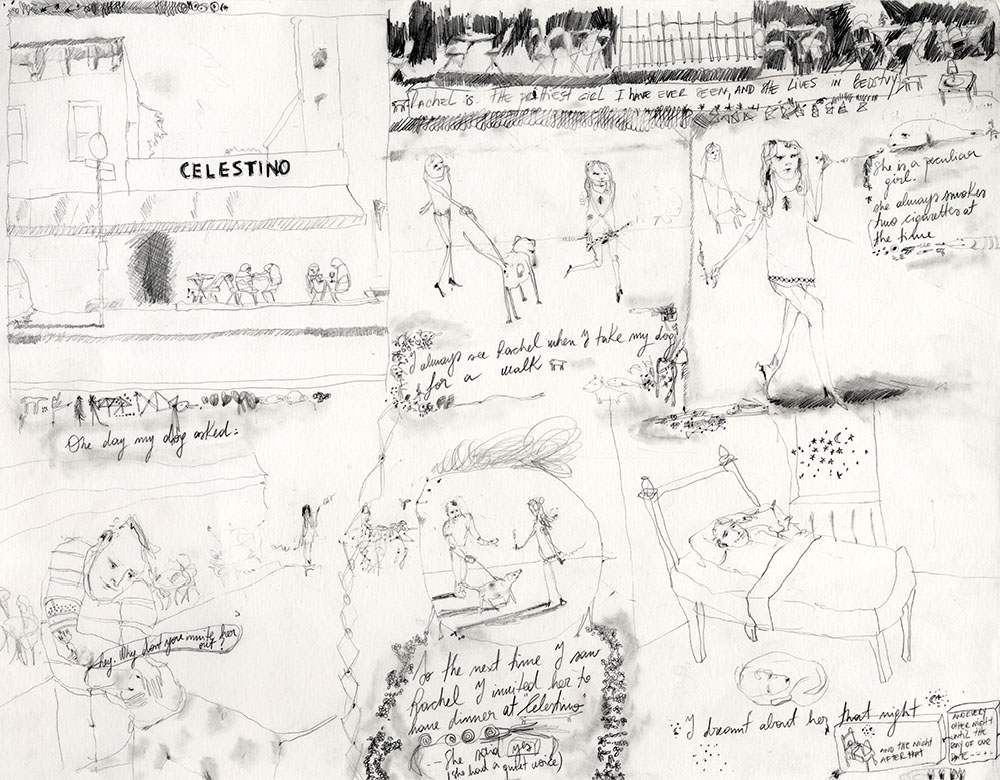 CELESTINO
RACHEL IS THE PRETTIEST GIRL I HAVE EVER SEEN, AND SHE LIVES IN BEDSTUY
I always see Rachel when I take my dog
for a walk
She is a peculiar
girl.
she always smokes
two cigarettes at
the time
One day my dog asked:
hey. Why dont you invite her
out?
So the next time I saw
Rachel I invited her to
have dinner at "Celestino"
She said yes
(she had a quiet voice)
I dreamt about her that night
AND THE NIGHT
AFTER THAT
AND EVERY
OTHER NIGHT
UNTIL THE
DAY OF OUR
DATE